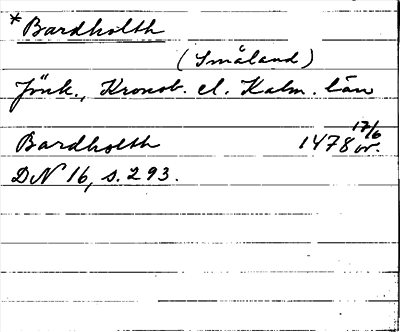 * Bardholth
(Småland)
Jönk., Kronob. el. Kalm. län
Bardholth 1478 17/6 or.
DN 16, s. 293.